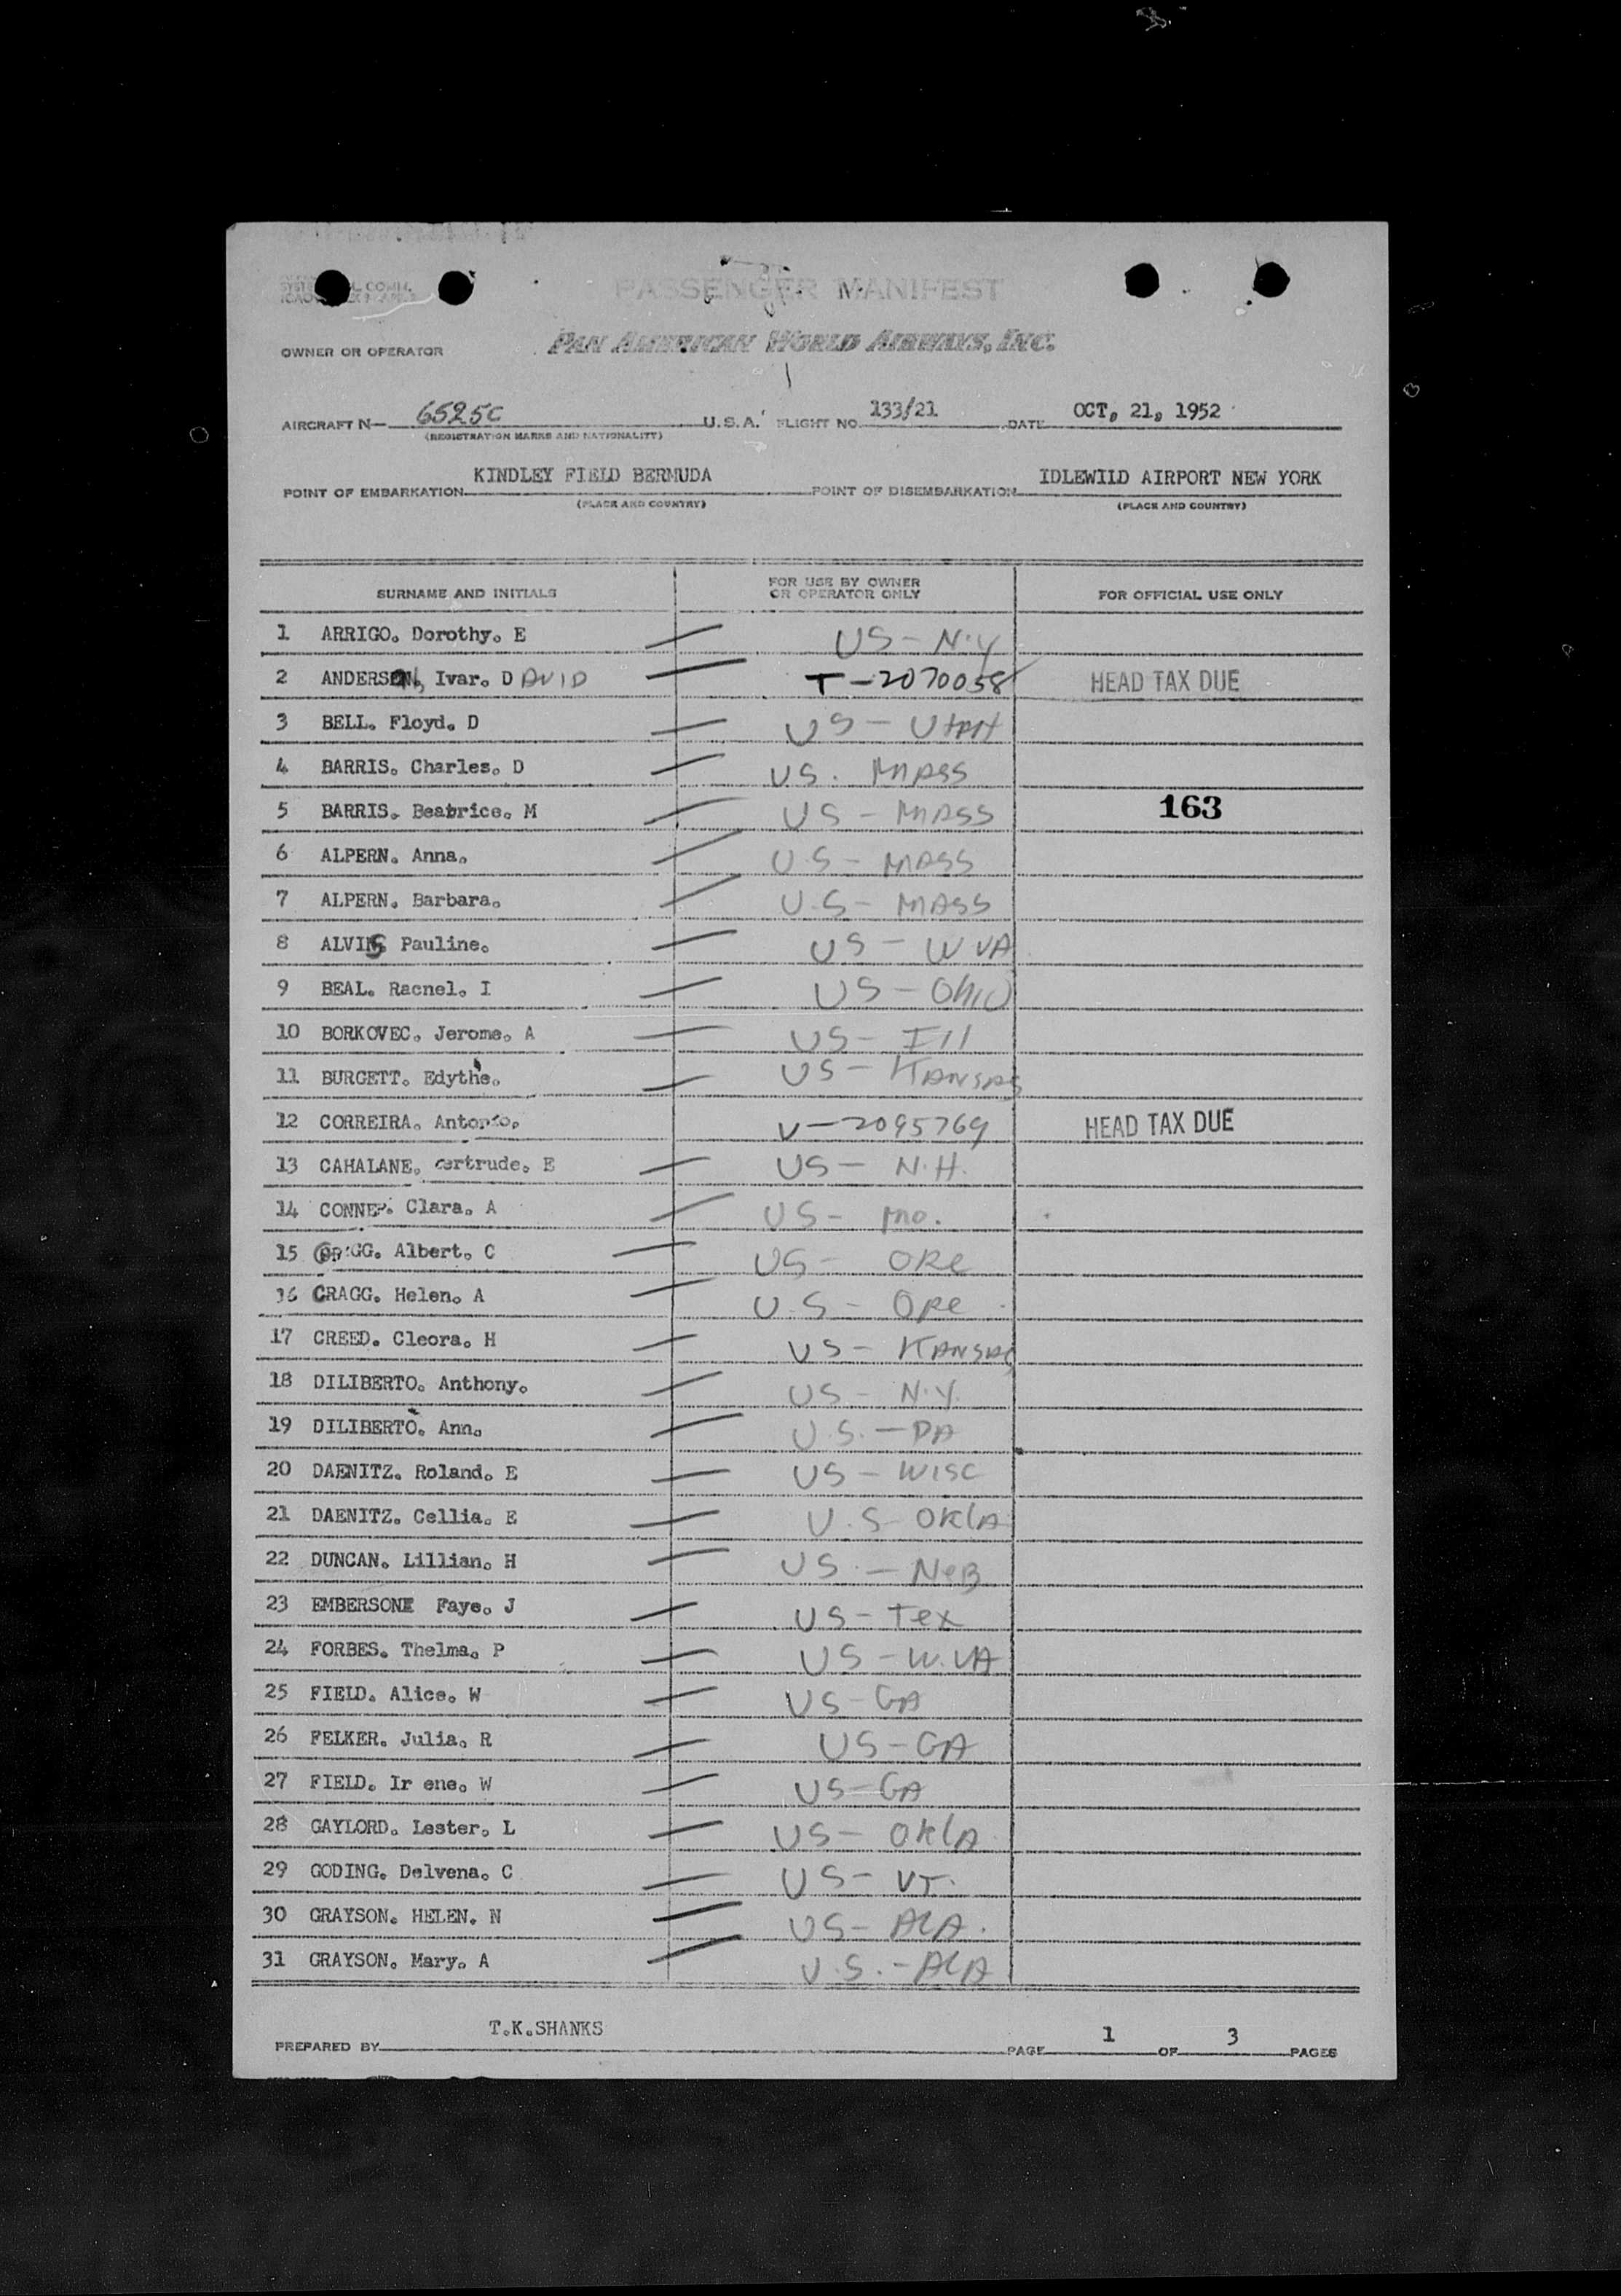 PASSENGER MANIFEST
OWNER OR OPERATOR PAN AMERICAN WORLD AIRWAYS, INC.
AIRCRAFT N— 6525C U.S.A. FLIGHT NO. 133/21 DATE OCT, 21, 1952
(REGISTRATION MARKS AND NATIONALITY)
POINT OF EMBARKATION KINDLEY FIELD BERMUDA POINT OF DISEMBARKATION IDLEWILD AIRPORT NEW YORK
(PLACE AND COUNTRY) (PLACE AND COUNTRY)
SURNAME AND INITIALS FOR USE BY OWNER OR OPERATOR ONLY FOR OFFICIAL USE ONLY
1 ARRIGO. Dorothy. E US - N.Y
2 ANDERSON, Ivar. D AVID T-2070058 HEAD TAX DUE
3 BELL. Floyd. D US - UtAH
4 BARRIS. Charles. D US. MASS
5 BARRIS. Beatrice. M US - MASS 163
6 ALPERN. Anna. U.S - MASS
7 ALPERN. Barbara. U.S - MASS
8 ALVIS Pauline. US - W VA
9 BEAL. Racnel. I US - OhIO
10 BORKOVEC. Jerome. A US - Ill
11 BURGETT. Edythe. US - KANSAS
12 CORREIRA. Antonio. V-2095769 HEAD TAX DUE
13 CAHALANE. Gertrude. E US - N.H.
14 CONNER. Clara. A US - Mo.
15 CRAGG. Albert. C US - ORe
16 CRAGG. Helen. A U.S - ORe
17 CREED. Cleora. H US - KANSAS
18 DILIBERTO. Anthony. US - N.Y.
19 DILIBERTO. Ann. U.S. - PA
20 DAENITZ. Roland. E US - WISC
21 DAENITZ. Cellia. E U.S - OKlA
22 DUNCAN. Lillian. H US - NeB
23 EMBERSON Faye. J US - Tex
24 FORBES. Thelma. P US - W.VA
25 FIELD. Alice. W US - GA
26 FELKER. Julia. R US - GA
27 FIELD. Ir ene. W US - GA
28 GAYLORD. Lester. L US - OKlA
29 GODING. Delvena. C US - VT.
30 GRAYSON. HELEN. N US - AlA.
31 GRAYSON. Mary. A U.S. - AlA
PREPARED BY T.K.SHANKS PAGE 1 OF 3 PAGES